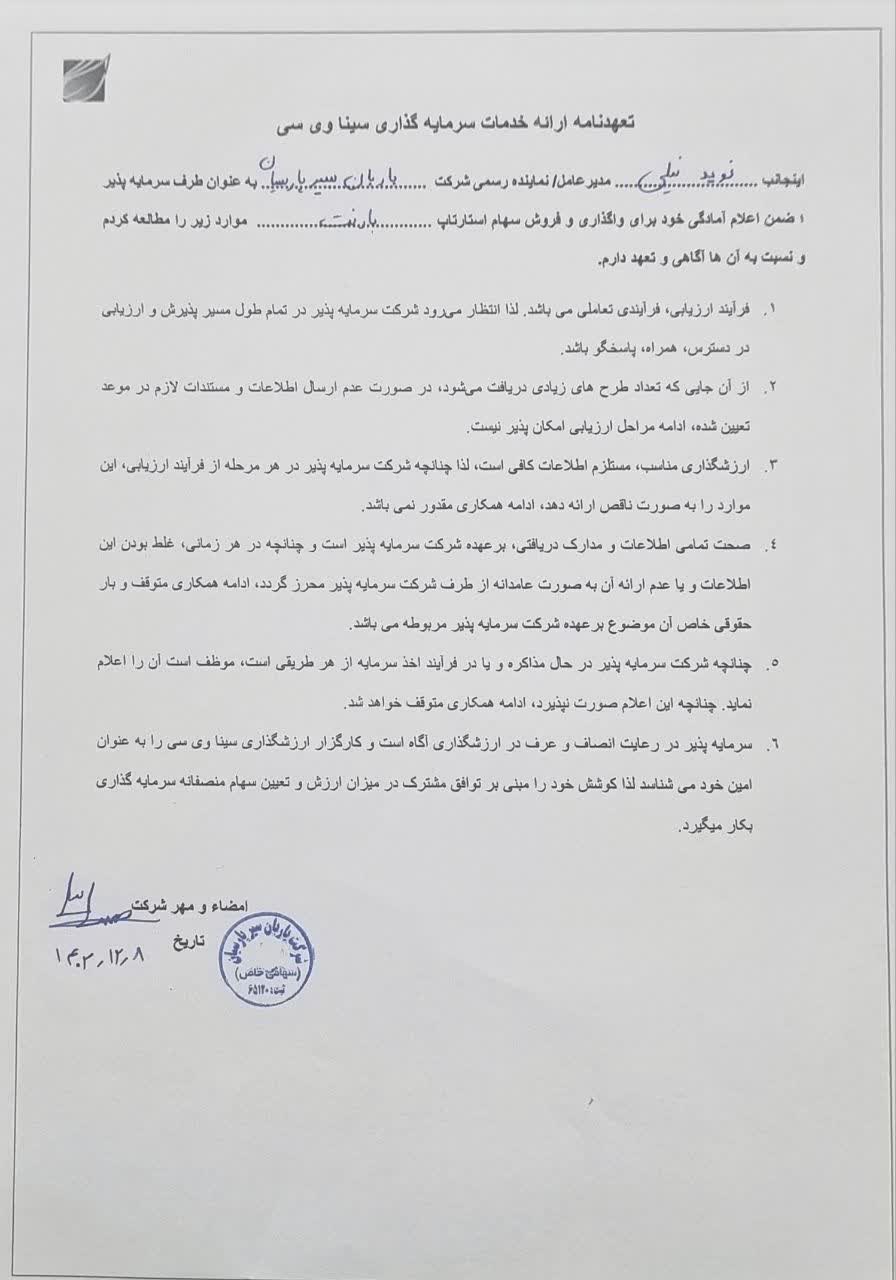 تعهدنامه ارائه خدمات سرمایه گذاری سینا وی سی
اینجانب ...نوید نیلی... مدیرعامل/ نماینده رسمی شرکت ...یاریان سیر پارسیان... به عنوان طرف سرمایه پذیر
، ضمن اعلام آمادگی خود برای واگذاری و فروش سهام استارتاپ ...... موارد زیر را مطالعه کردم
و نسبت به آن ها آگاهی و تعهد دارم.
۱. فرآیند ارزیابی، فرآیندی تعاملی می باشد. لذا انتظار می‌رود شرکت سرمایه پذیر در تمام طول مسیر پذیرش و ارزیابی
در دسترس، همراه، پاسخگو باشد.
۲. از آن جایی که تعداد طرح های زیادی دریافت می‌شود، در صورت عدم ارسال اطلاعات و مستندات لازم در موعد
تعیین شده، ادامه مراحل ارزیابی امکان پذیر نیست.
۳. ارزشگذاری مناسب، مستلزم اطلاعات کافی است، لذا چنانچه شرکت سرمایه پذیر در هر مرحله از فرآیند ارزیابی، این
موارد را به صورت ناقص ارائه دهد، ادامه همکاری مقدور نمی باشد.
٤. صحت تمامی اطلاعات و مدارک دریافتی، برعهده شرکت سرمایه پذیر است و چنانچه در هر زمانی، غلط بودن این
اطلاعات و یا عدم ارائه آن به صورت عامدانه از طرف شرکت سرمایه پذیر محرز گردد، ادامه همکاری متوقف و بار
حقوقی خاص آن موضوع برعهده شرکت سرمایه پذیر مربوطه می باشد.
٥. چنانچه شرکت سرمایه پذیر در حال مذاکره و یا در فرآیند اخذ سرمایه از هر طریقی است، موظف است آن را اعلام
نماید. چنانچه این اعلام صورت نپذیرد، ادامه همکاری متوقف خواهد شد.
٦. سرمایه پذیر در رعایت انصاف و عرف در ارزشگذاری آگاه است و کارگزار ارزشگذاری سینا وی سی را به عنوان
امین خود می شناسد لذا کوشش خود را مبنی بر توافق مشترک در میزان ارزش و تعیین سهام منصفانه سرمایه گذاری
بکار میگیرد.
امضاء و مهر شرکت
تاریخ ۱۴۰۲,۱۲,۸
شرکت یاریان سیر پارسیان
(سهامی خاص)
ثبت: ۶۵۱۲۰